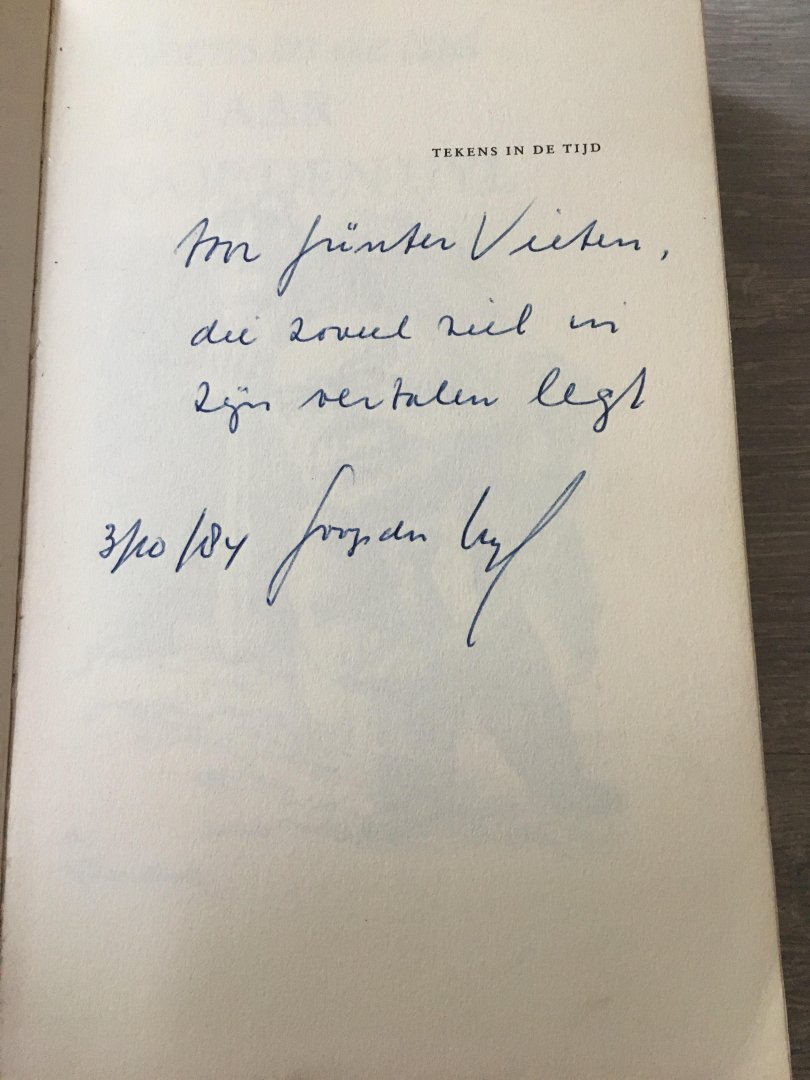 TEKENS IN DE TIJD
Voor Günter Vieten,
die zoveel ziel in
zijn vertalen legt
3/10/84 Joop den Uyl